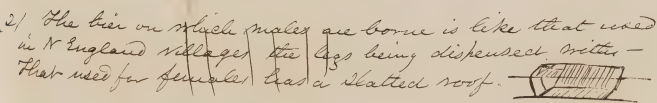 2/ The bier on which males are borne is like that used
in N England villages the legs being dispensed with –
That used for females has a slatted roof.